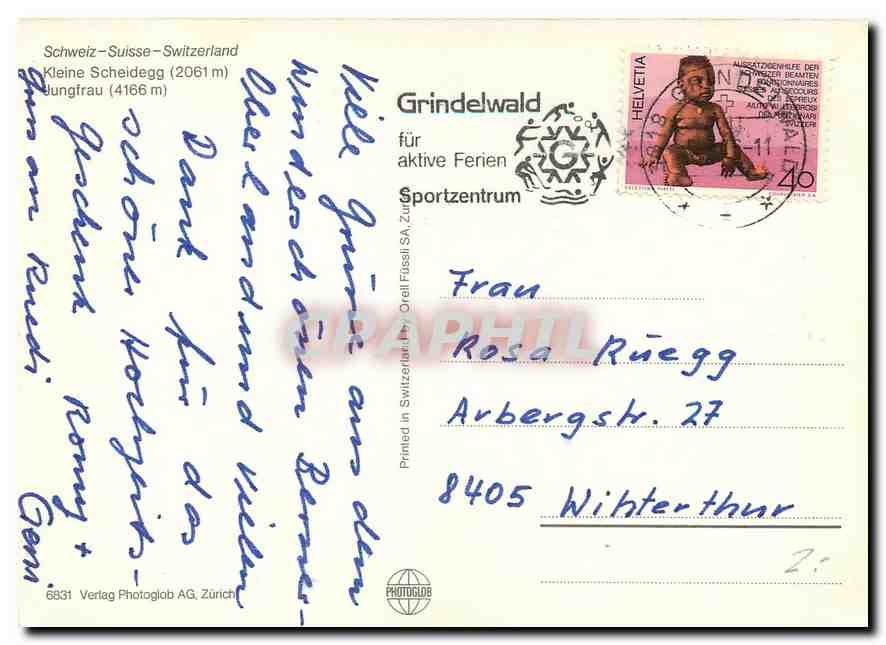 Schweiz–Suisse–Switzerland
Kleine Scheidegg (2061 m)
Jungfrau (4166 m)
Viele Grüsse aus dem
wunderschönen Berner-
Oberland und vielen
Dank für das
schöne Hochzeits-
geschenk Romy +
guss am Ruedi Geni
6831 Verlag Photoglob AG, Zürich
PHOTOGLOB
Printed in Switzerland by Orell Füssli SA, Zür
Grindelwald
für
aktive Ferien
Sportzentrum
G
HELVETIA
AUSSÄTZIGENHILFE DER
SCHWEIZER BEAMTEN
FONCTIONNAIRES
SUISSES AU SECOURS
DES LÉPREUX
AIUTO AI LEBBROSI
DEI FUNZIONARI
SVIZZERI
40
COURVOISIER S.A.
3818 GRINDELWALD
-11
CPAPHIL
Frau
Rosa Rüegg
Arbergstr. 27
8405 Winterthur
2.-